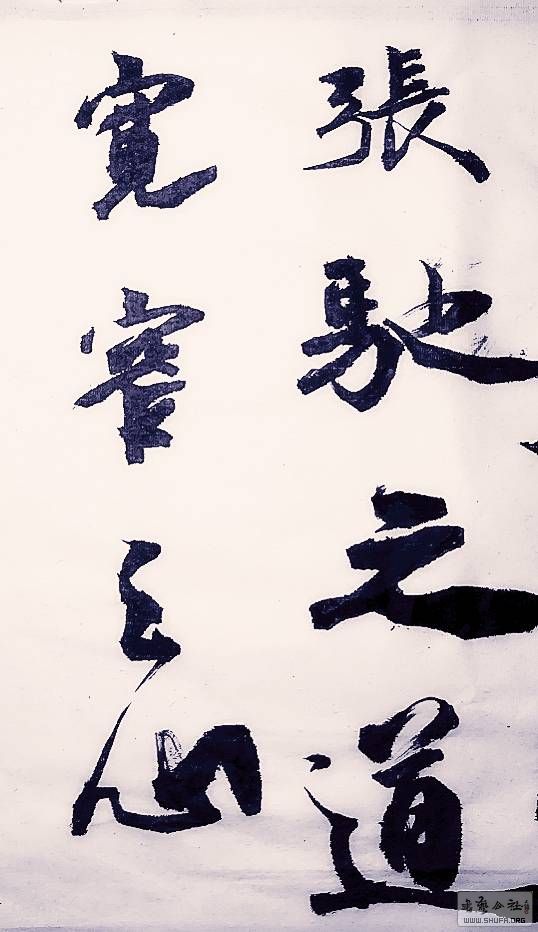 張馳之道
寬容之心
書藝公社
WWW.SHUFA.ORG